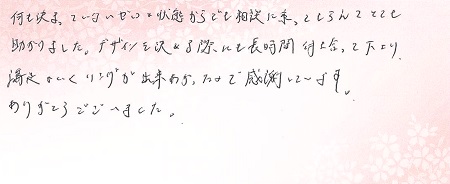 何も決まっていないゼロの状態からでも相談に乗ってもらえてとても
助かりました。デザインを決める際にも長時間付き合って下さり
満足のいくリングが出来上がったので感謝しています。
ありがとうございました。